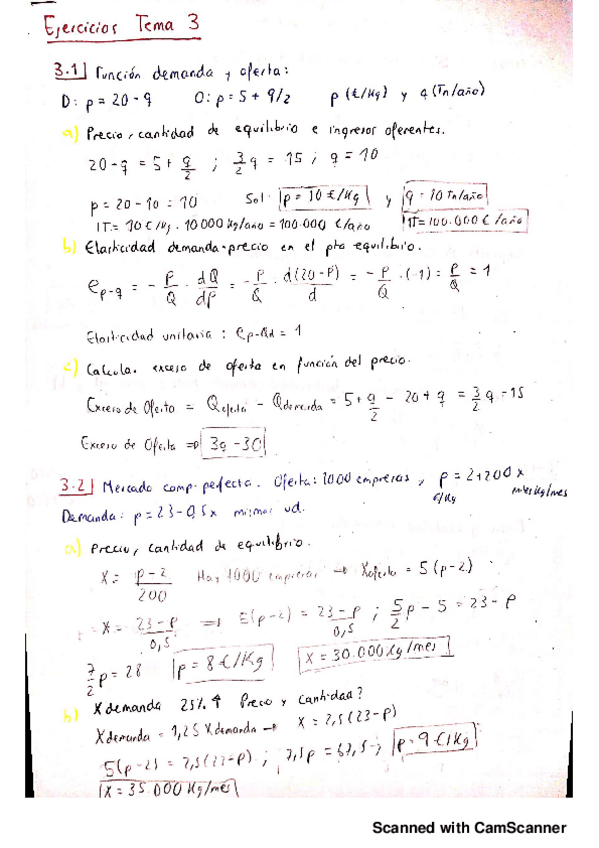 Ejercicios Tema 3
3.1 Función demanda y oferta:
D: p = 20 - q O: p = 5 + q/2 p (€/Kg) y q (Tn/año)
a) Precio, cantidad de equilibrio e ingresos oferentes.
20 - q = 5 + q/2 ; 3/2 q = 15 ; q = 10
p = 20 - 10 = 10 Sol: p = 10 €/Kg y q = 10 Tn/año
IT = 10 €/Kg · 10 000 Kg/año = 100.000 €/año IT = 100.000 €/año
b) Elasticidad demanda-precio en el pto equilibrio.
e p-q = - P/Q · dQ/dP = - P/Q · d(20-P)/d = - P/Q · (-1) = P/Q = 1
Elasticidad unitaria : e p-Qd = 1
c) Calcula. exceso de oferta en función del precio.
Exceso de Oferta = Q oferta - Q demanda = 5 + q/2 - 20 + q = 3/2 q - 15
Exceso de Oferta ⇒ 3q - 30
3.2 Mercado comp. perfecta. Oferta: 1000 empresas , p = 2 + 200 x
€/Kg miles Kg/mes
Demanda: p = 23 - 0,5 x mismas ud.
a) Precio, cantidad de equilibrio.
x = p - 2 / 200 Hay 1000 empresas → X oferta = 5 (p - 2)
x = 23 - p / 0,5 ⇒ (p - 2) = 23 - p / 0,5 ; 5/2 p - 5 = 23 - p
7/2 p = 28 p = 8 €/Kg X = 30.000 Kg/mes
b) X demanda 25% ↑ Precio y cantidad?
X demanda = 1,25 X demanda → X = 2,5 (23 - p)
5(p - 2) = 2,5 (23 - p) ; 7,5 p = 67,5 ; p = 9 €/Kg
X = 35.000 Kg/mes
Scanned with CamScanner